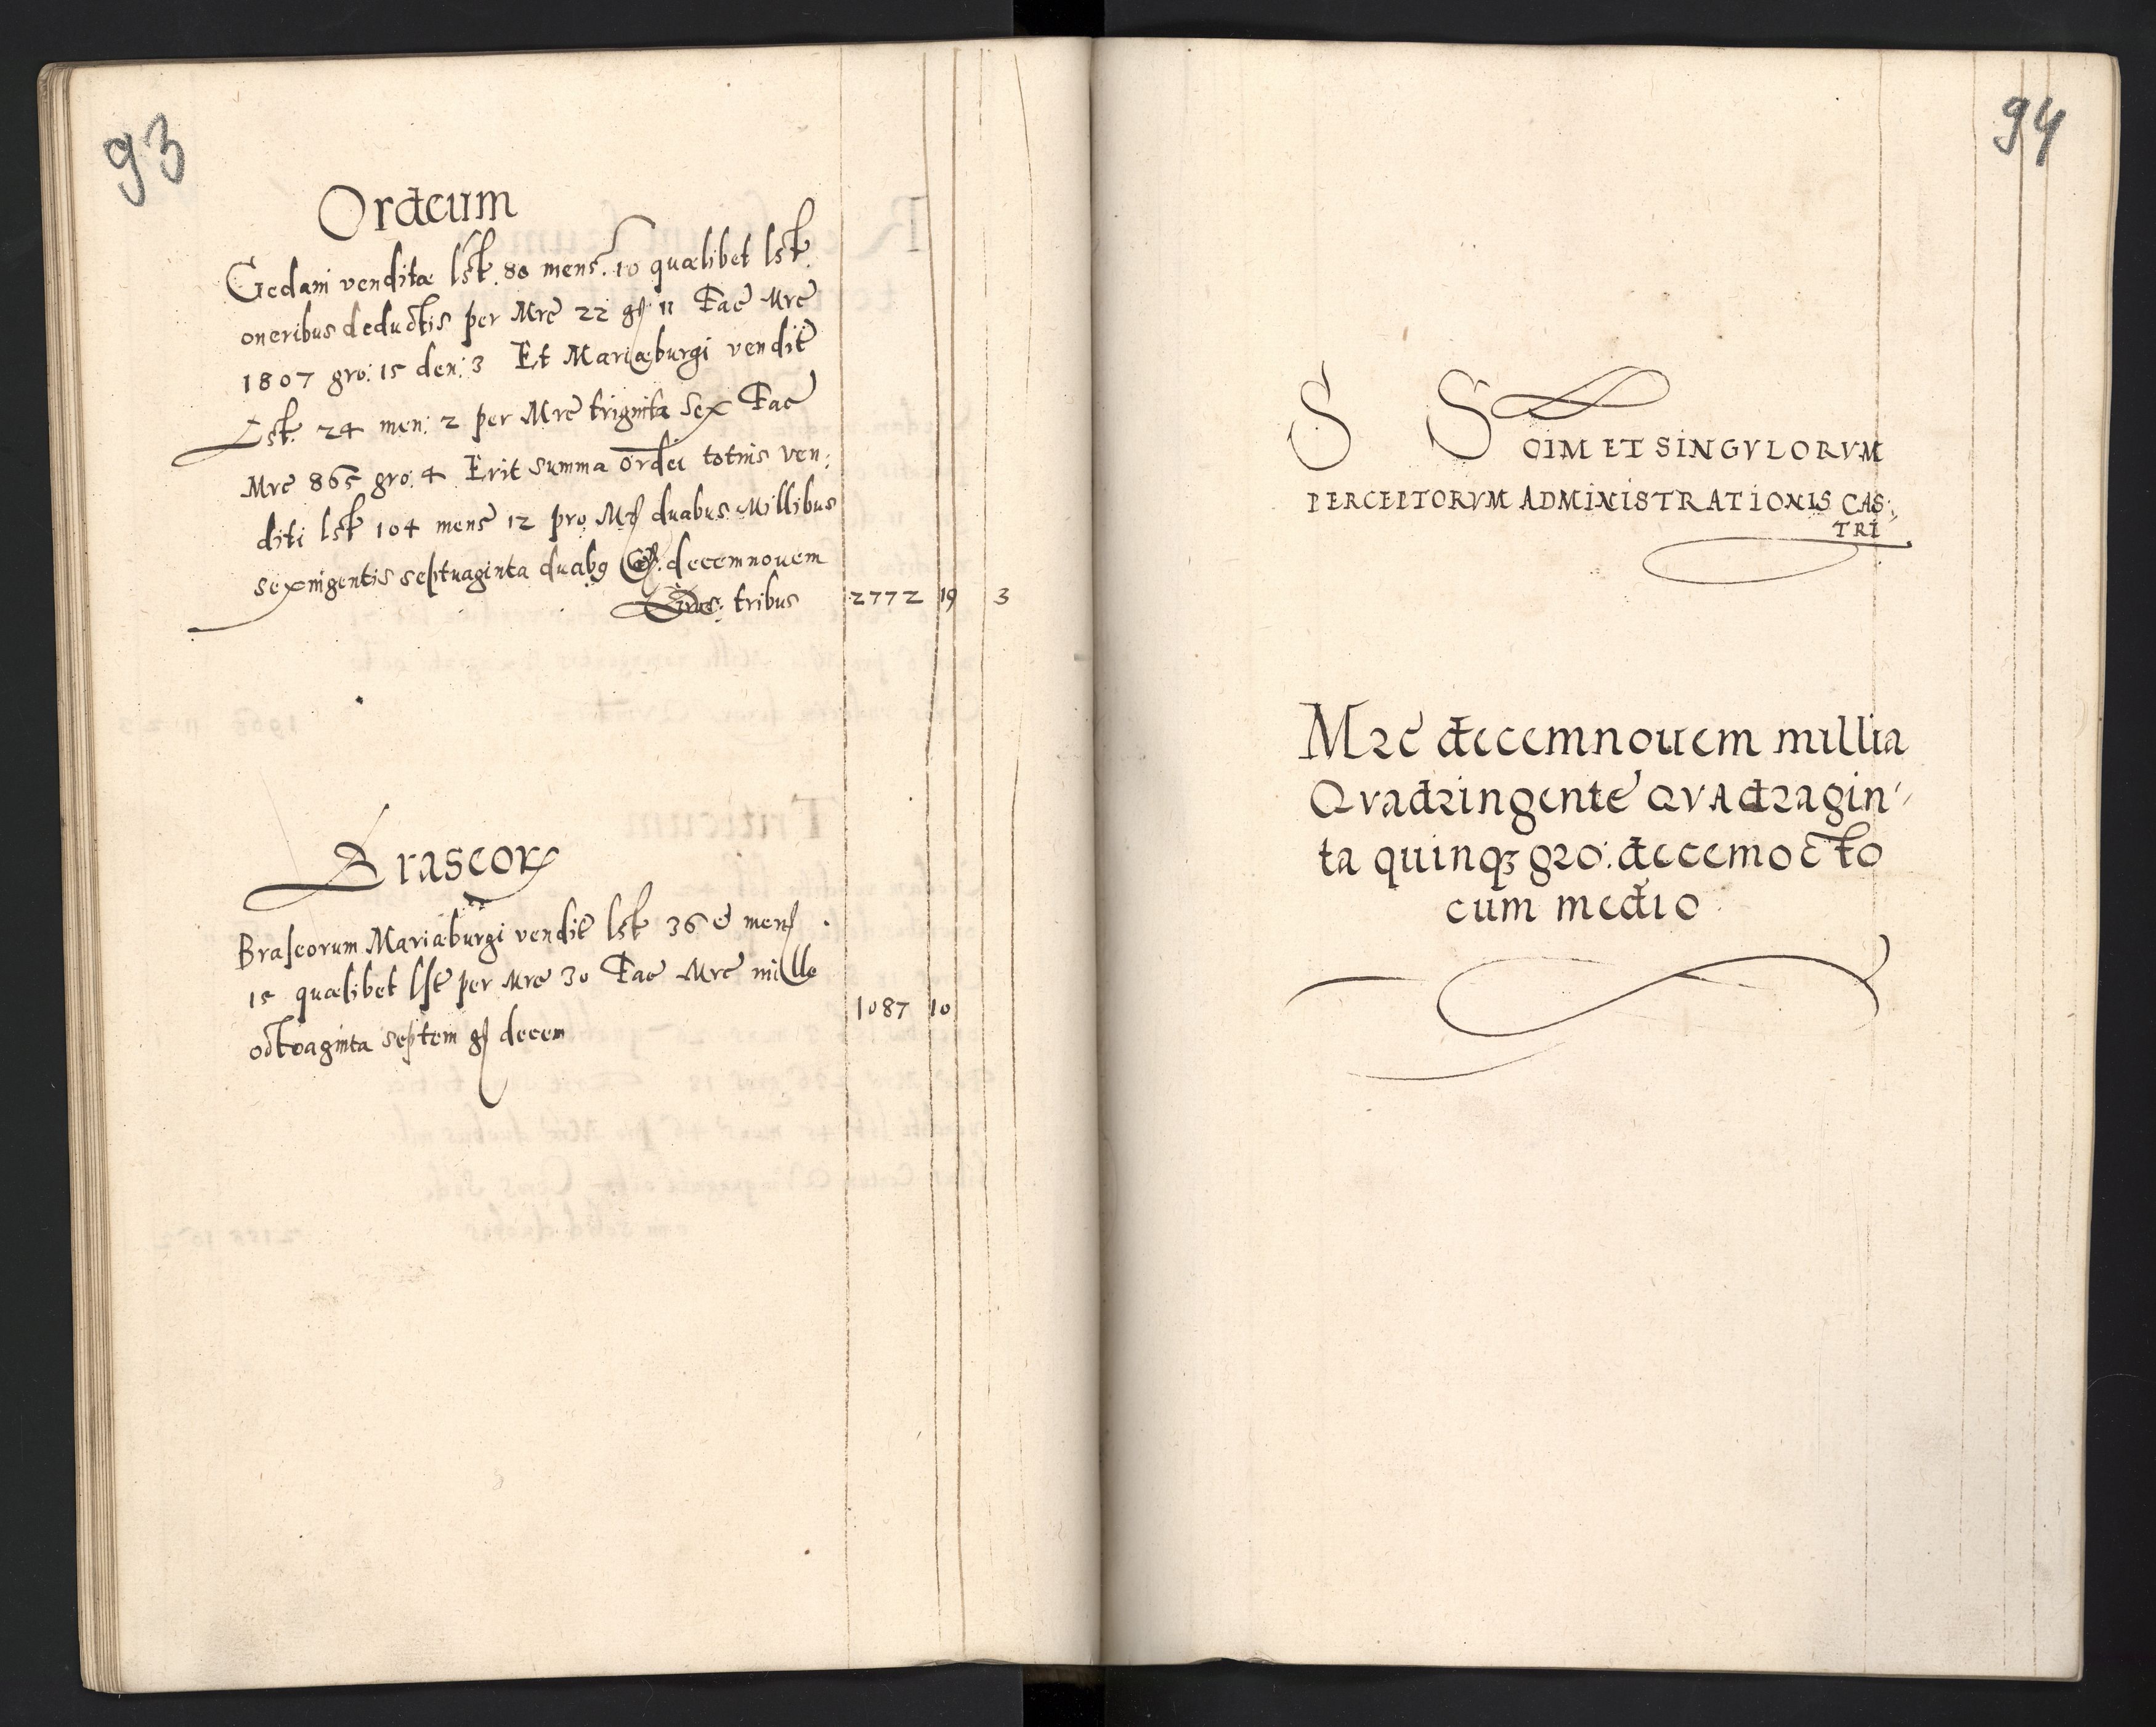 93
Ordeum
Gedani venditæ lst. 80 mens. 10 quælibet lst.
oneribus deductis per Mrc 22 gr 11 Fac Mrc
1807 gro: 15 den: 3 Et Mariæburgi vendit
Lst. 24 men: 2 per Mrc triginta sex Fac
Mrc 865 gro: 4 Erit summa ordei totius ven:
diti lst 104 mens 12 pro Mr duabus Millibus
sexingentis septuaginta duabq Gr. decemnouem
tribus 2772 19 3
Braseorum
Braseorum Mariæburgi vendit lst 36 et mens
15 quælibet lst per Mrc 30 Fac Mrc mille
octoaginta septem gr decem 1087 10
94
S S OIM ET SINGVLORVM
PERCEPTORVM ADMINISTRATIONIS CAS:
TRI
Mrc decemnouem millia
Qvadringente qvadragin
ta quinq3 gro: decemocto
cum medio